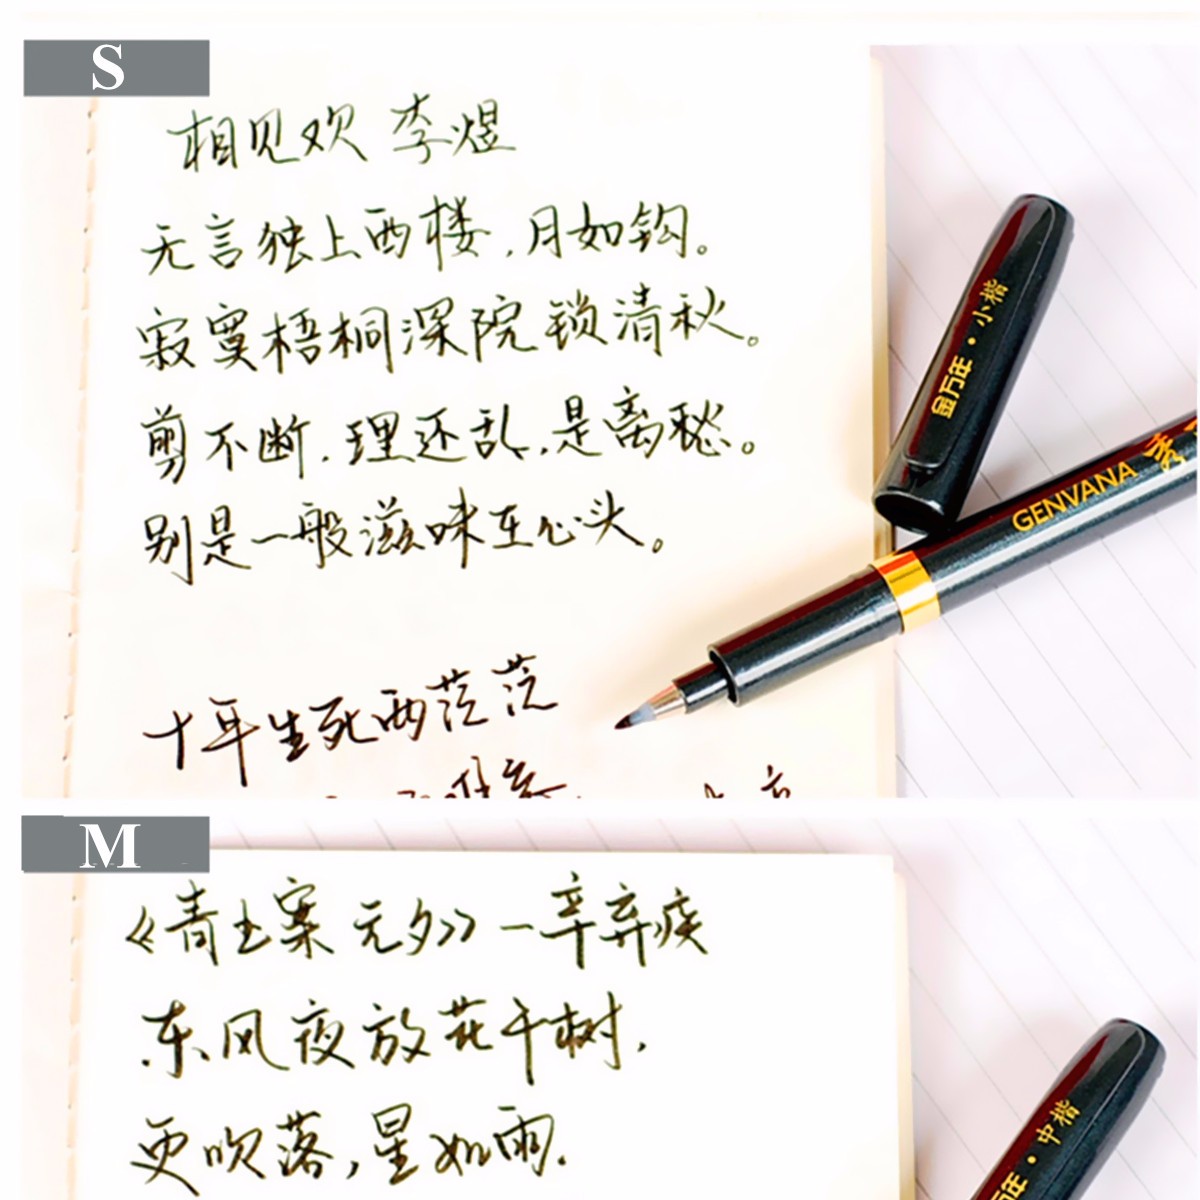 S
相见欢 李煜
无言独上西楼,月如钩。
寂寞梧桐深院锁清秋。
剪不断,理还乱,是离愁。
别是一般滋味在心头。
十年生死两茫茫
金万年·小楷
GENVANA 秀
M
《青玉案 元夕》—辛弃疾
东风夜放花千树,
更吹落,星如雨.
年·中楷